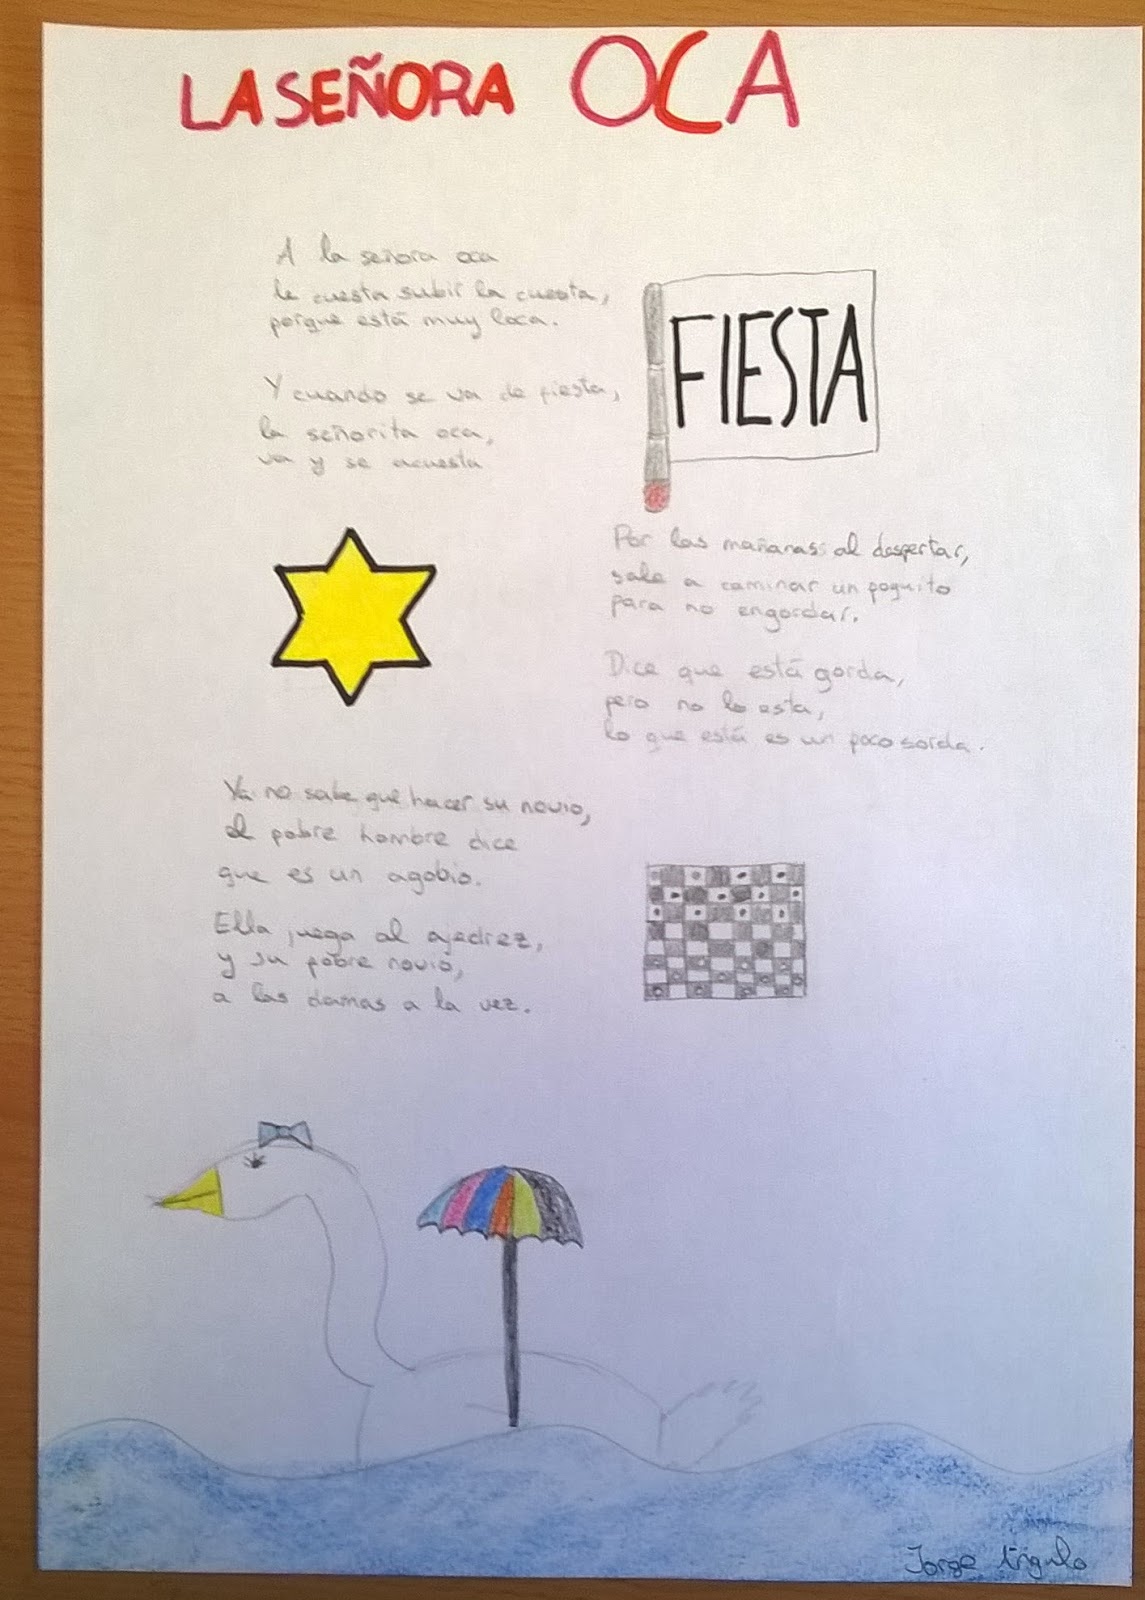 LA SEÑORA OCA
A la señora oca
le cuesta subir la cuesta,
porque está muy loca.
Y cuando se va de fiesta,
la señorita oca,
va y se acuesta
FIESTA
Por las mañanas al despertar,
sale a caminar un poquito
para no engordar.
Dice que está gorda,
pero no lo esta,
lo que está es un poco sorda.
Ya no sabe que hacer su novio,
el pobre hombre dice
que es un agobio.
Ella juega al ajedrez,
y su pobre novio,
a las damas a la vez.
Jorge Angulo